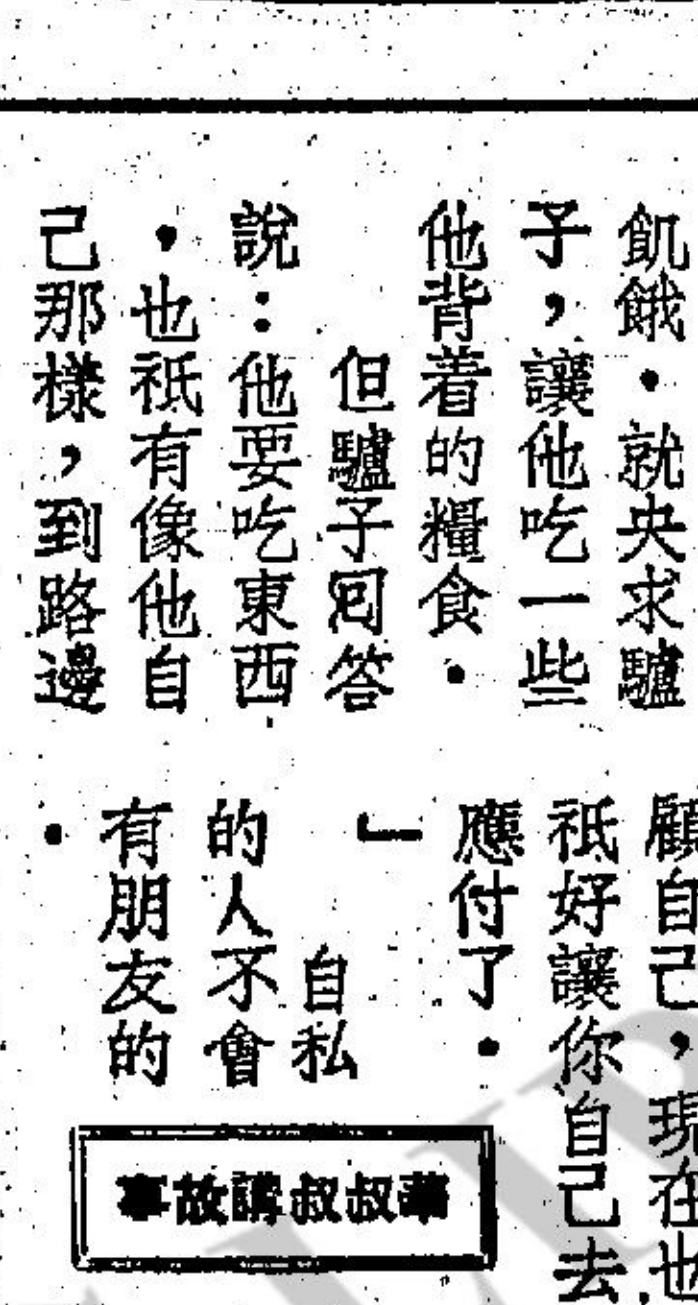 飢餓．就央求驢
子，讓他吃一些
他背着的糧食．
但驢子回答
說：他要吃東西
，也祇有像他自
己那樣，到路邊
顧自己，現在也
祇好讓你自己去
應付了．
」
自私
的人不會
有朋友的
．
華叔叔講故事